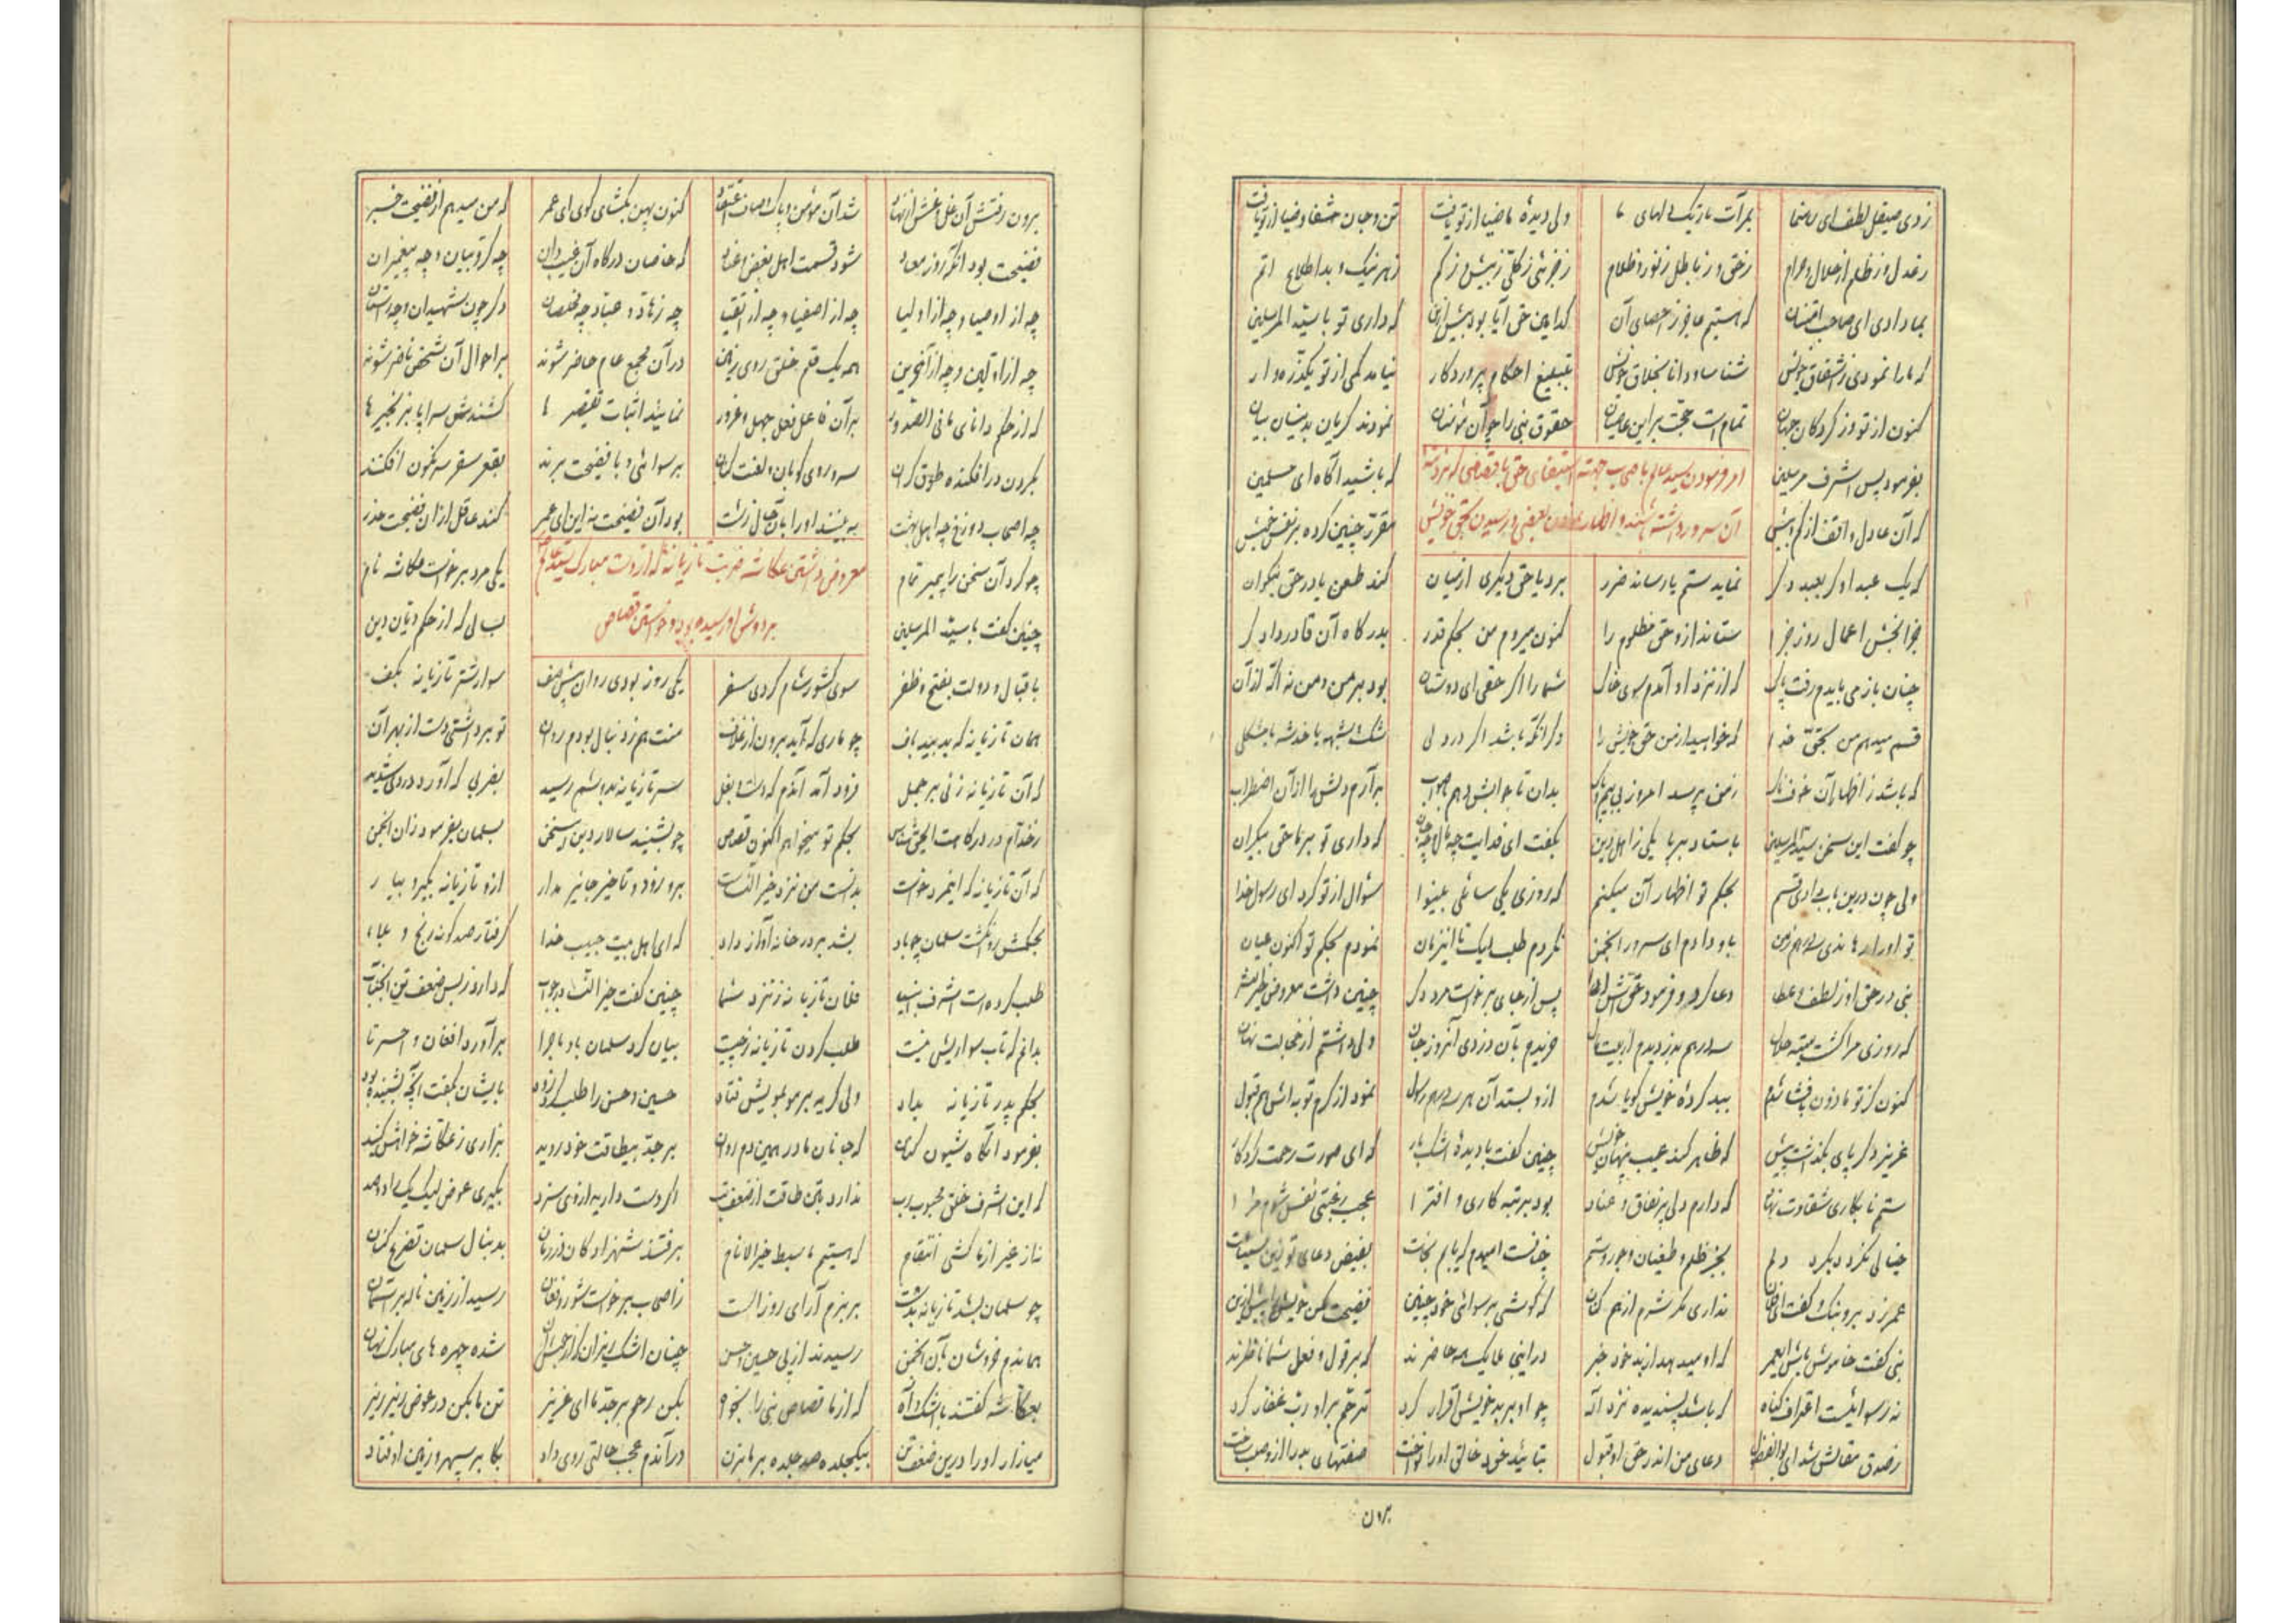 زدی صیقل لطف ای رهنما بمرآت تاریک دلهای ما ولی دیدهٔ ما ضیا از تو یافت تن و جان شفا و ضیا از تو یافت
ز عدل و ز ظلم از حلال و حرام ز حق و ز باطل ز نور و ظلام ز جزئی ز کلی ز بیش و ز کم ز هر نیک و بد اطلاع اتم
بما دادی ای صاحب که هستیم عاجز ز احصای آن کدامین حق آیا بود بیش ازین که داری تو یا سید المرسلین
که ما را نمودی ز اشفاق خویش شناسا و دانا بخلاق خویش بتبلیغ احکام پروردکار نیامد کمی از تو یکذره وار
کنون از تو وز کردکار جهان تمام است حجت بر این عاصیان حقوق نبی را چو آن مؤمنان نمودند کریان بدینسان بیان
امر فرمودن سید عالم باصحاب جهته استیفای حق یا قصاصی که نزد
آن سرور داشته باشند و اظهار نمودن بعضی و رسیدن بحق خویش
بفرمود پس اشرف مرسلین که باشید آکاه ای مسلمین
که آن عادل واقف از کم و بیش مقرر چنین کرده بر نفس خویش
که یک عبد او کر بعبد دکر نماید ستم یا رساند ضرر برد یا حق دیکری از میان کند طعن یا در حق نیکوان
جزا بخش اعمال روز جزا ستاند ازو حق مظلوم را کنون میروم من بحکم قدر بدرکاه آن قادر دادکر
چنان باز می بایدم رفت پاک که از نزد او آمدم سوی خاک شما را اکر حقی ای دوستان بود بر من و من نه اکه از آن
قسم میدهم من بحق خدا که خواهید از من حق خویش را دکر آنکه باشد اکر در دلی شک و شبهه یا خدشه یا مشکلی
که باشد ز اظهار آن خوفناک ز من پرسد امروز بی بیم و باک بدان تا جوابش دهم بر صواب برآرم دلش را از آن اضطراب
چو کفت این سخن سید المرسلین باستاد بر پا یکی ز اهل دین بکفت ای فدایت چه مال و چه جان که داری تو بر ما حق بیکران
ولی چون درین باب دادی قسم بحکم تو اظهار آن میکنم که روزی یکی سائلی بینوا سؤال از تو کرد ای رسول خدا
تو او را باو دادم ای سرور انجمن نکردم طلب لیک تا این زمان نمودم بحکم تو اکنون عیان
نبی در حق او ز لطف و عطا دعا کرد و فرمود حقش ادا پس از جای برخواست مرد دکر چنین داشت معروض خیر البشر
که روزی مرا کشت سه درهم بدزدیدم از بیت مال خریدم بآن دزدی آنروز جان ولی داشتم از خجالت نهان
کنون کز تو ماذون بافشا شدم ببد کردهٔ خویش کویا شدم ازو بستد آن هر سه درهم رسول نمود از کرم توبه اش هم قبول
عزیز دکر پای بکذاشت پیش که ظاهر کند عیب پنهان خویش چنین کفت با دیدهٔ اشکبار که ای صورت رحمت کردکار
ستم نابکاری شقاوت نهاد که دارم دلی پر نفاق و عناد بود بر تبه کاری و افترا عجب رغبتی نفس شوم مرا
خیالی نکرد دیکرد دلم بجز ظلم و طغیان و جور و ستم چنانست امیدم که یابم نجات بفیض دعای تو زین سیئات
عمر زد برو بانک و کفت ای فلان نداری مکر شرم از همکنان که کوشی برسوائی خود چنین فضیحت مکن خویش را بیش ازین
نبی کفت خاموش باش ای عمر که او میدهد از بد خود خبر در اینجا ملایک همه حاضرند که بر قول و فعل شما ناظرند
نه رسوائیست اعتراف کناه که باشد پسندیده نزد اله چو او بر بد خویش اقرار کرد ترحم بر او رب غفار کرد
ز صدق مقالش شد ای بوالفضول دعای من اندر حق او قبول بتائید خود خالق او را نواخت صفتهای بد را ازو محو ساخت
برون
برون رفتش آن غل و غش از نهاد شد آن مؤمن و پاک و صاف اعتقاد کنون پهن بکشای کوی ای عمر که من میدهم از فضیحت خبر
فضیحت بود آنکه روز معاد شود قسمت اهل بغض و عناد که خاصان درکاه آن غیب دان چه کروبیان و چه پیغمبران
چه از اوصیا و چه از اولیا چه از اصفیا و چه از اتقیا چه زهاد و عباد چه مخلصان دکر چون شهیدان و چه راستان
چه از اولین و چه از آخرین همه یک قلم خلق روی زمین در آن مجمع عام حاضر شوند بر احوال آن شخص ناظر شوند
که از حکم دانای ما فی الصدور بر آن فاعل فعل جهل و غرور نمایند اثبات تقصیر ها کشندش سراپا بزنجیر ها
بکردن در افکنده طوق کران سر و روی کوبان و لعنت کنان برسوائی و با فضیحت برند بقعر سقر سرنکون افکنند
چه اصحاب دوزخ چه اهل بهشت به بینند او را بآن حال زشت بود آن فضیحت نه این ای عمر کند عاقل از آن فضیحت حذر
معروض داشتن عکاشه ضربت تازیانه که از دست مبارک سید عالم
بر دوش او رسیده بود و خواستن قصاص
چو کرد آن سخن را پیمبر تمام یکی مرد برخواست عکاشه نام
چنین کفت یا سید المرسلین بسالی که از حکم دیان دین
باقبال و دولت بفتح و ظفر سوی کشور شام کردی سفر یکی روز بودی روان پیش صف سوار شتر تازیانه بکف
همان تازیانه که بد چو ماری که آید برون از غلاف منت هم ز دنبال بودم روان تو برداشتی دست از بهر آن
که آن تازیانه زنی بر جمل فرود آمد آندم که دست از بغل سر تازیانه بدوشم رسید بضربی که آورد درد شدید
بحکم تو میخواهم اکنون قصاص چو بشنید سالار دین این سخن بسلمان بفرمود زان انجمن
که آن تازیانه که اینمرد خواست بدانست من نزد خیر النساست برو زود و تاخیر جایز مدار ازو تازیانه بکیر و بیار
بحکمش روان کشت سلمان چو باد بشد بر در خانه آواز داد که ای اهل بیت حبیب خدا کرفتار صد کونه رنج و عنا
طلب کرده است اشرف انبیا فلان تازیانه ز نزد شما چنین کفت خیر النسا در جواب که دارد ز بس ضعف تن آنجناب
بدانم که تاب سواریش نیست طلب کردن تازیانه ز چیست بیان کرد سلمان باو ماجرا برآورد افغان و احسرتا
بحکم پدر تازیانه بداد ولی کریه بر مو بمویش فتاد حسین و حسن را طلب کرد زود بایشان بکفت آنچه بشنیده بود
بفرمود آنکاه شیون کنان که جانان مادر همین دم روان بر جد بیطاقت خود روید بزاری ز عکاشه خواهش کنید
که این اشرف خلق محبوب رب ندارد بتن طاقت از ضعف تب اکر دست داری ازوی سزد بکیری عوض لیک یک را دو صد
نماز غیر از ما کشی انتقام که هستیم ما سبط خیر الانام برفتند شهزادکان در زمان بدنبال سلمان تضرع کنان
چو سلمان بشد تازیانه بدست ببزم آرای روز الست ز اصحاب برخواست شور و فغان رسید از زمین ناله بر آسمان
هماندم خروشان بآن انجمن رسیدند از پی حسین و حسن چنان اشک ریزان که شده چهره های مبارک نهان
بعکاشه کفتند با اشک و آه که از ما قصاص نبی را بخواه بکن رحم بر جد ما ای عزیز تن ما بکن در عوض ریز ریز
میازار او را درین ضعف تن بیکجلده صد جلده بر ما بزن در آندم عجب حالتی روی داد بکا بر سپهر و زمین اوفتاد